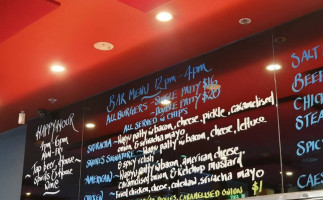 HAPPY HOUR
4pm - 6pm
Tap beer, House
Spirits &
wine
BAR MENU 12pm - 4pm
ALL BURGERS - SINGLE PATTY $16
DOUBLE PATTY $20
ALL SERVED w CHIPS
SRIRACHA - Happy patty w bacon, cheese, pickle, caramelised
onion & sriracha mayo
SIGNATURE - Happy patty w bacon, cheese, lettuce
& spicy relish
AMERICAN - Happy patty w bacon, american cheese,
caramelised onion & ketchup mustard
CHICKEN - Fried chicken, cheese, coleslaw, sriracha mayo
CARAMELISED ONION $1
SALT
BEER
CHICK
STEA
SPIC
CAES